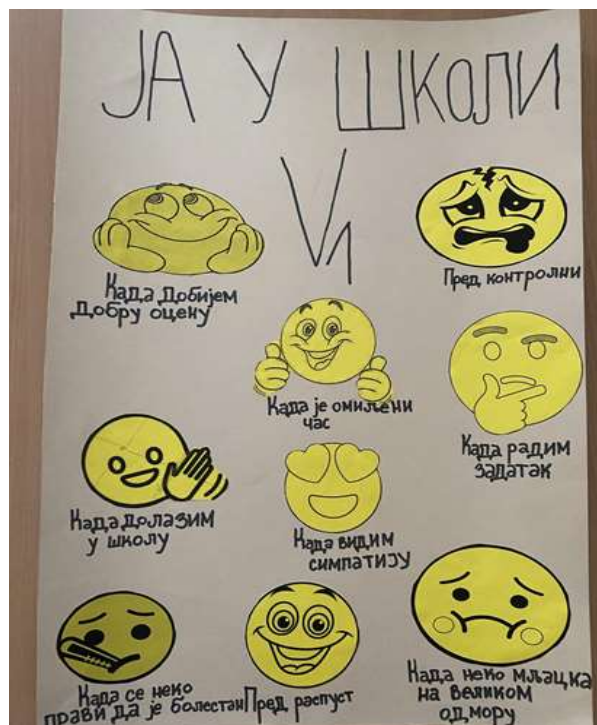 ЈА У ШКОЛИ
V1
Када добијем
добру оцену
Пред контролни
Када је омиљени
час
Када радим
задатак
Када долазим
у школу
Када видим
симпатију
Када се неко
прави да је болестан
Пред распуст
Када неко мљацка
на великом
одмору